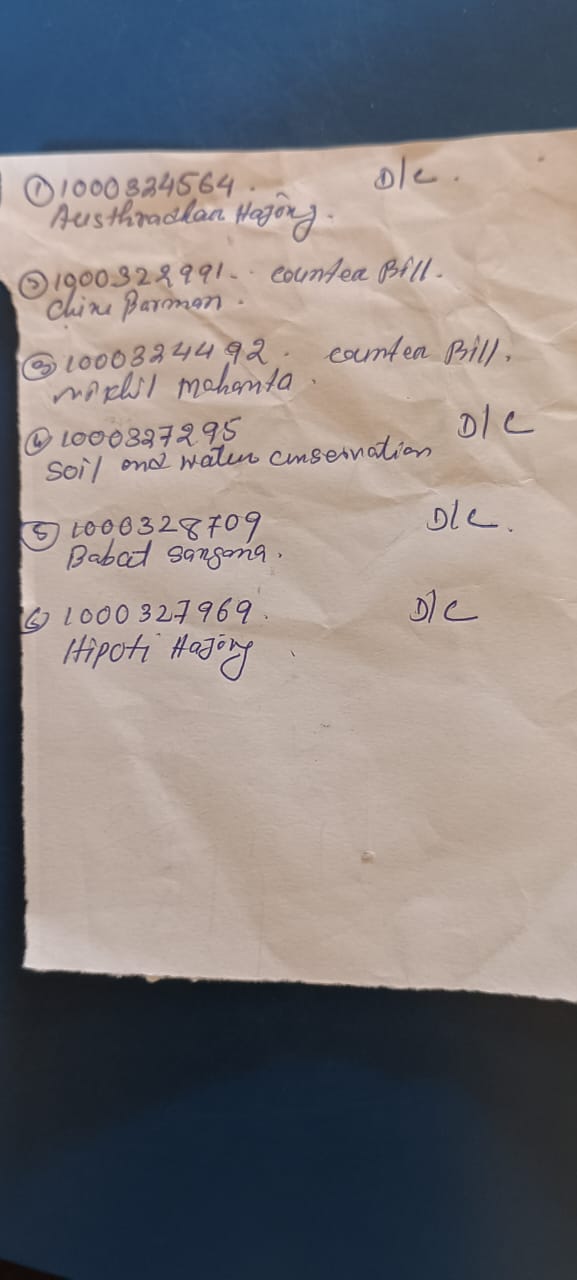 ① 1000324564. D/C.
Austhradhan Hajong.
② 1000322991. counter Bill.
Chine Barman.
③ 1000324492. counter Bill.
Nikhil Mahanta.
④ 1000327295 D/C
Soil and water cnservation
⑤ 1000328709 D/C.
Babat Sangma.
⑥ 1000327969. D/C
Hipoti Hajong